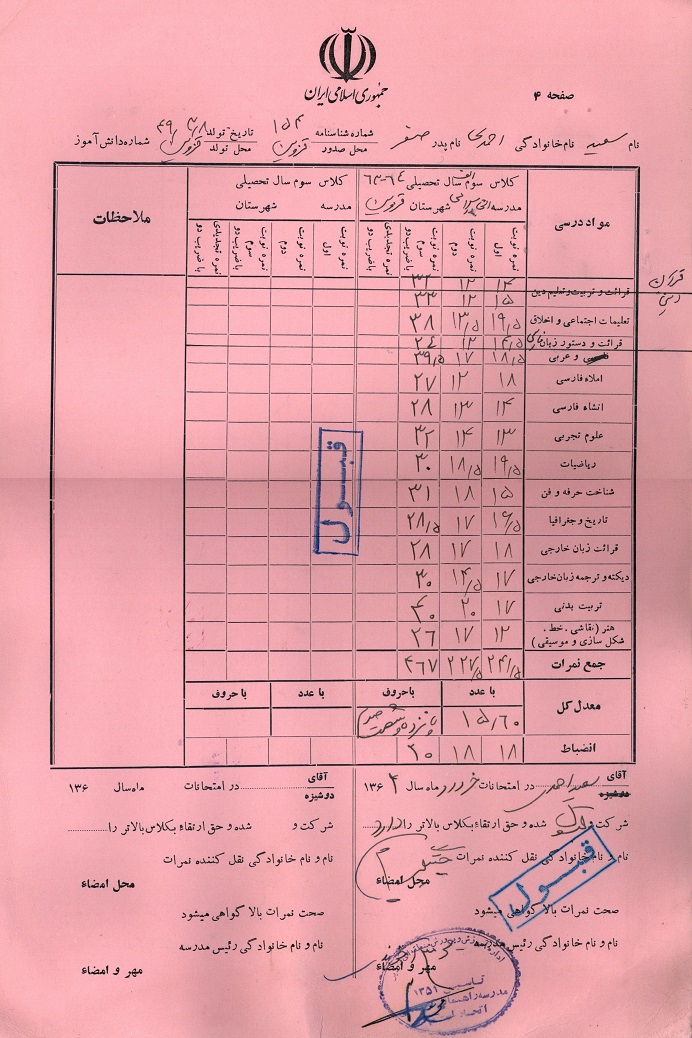 جمهوری اسلامی ایران
صفحه ۴
نام سعید نام خانوادگی احمدی نام پدر صفر شماره شناسنامه ۱۵۴ محل صدور قزوین تاریخ تولد ۴۹/۳/۸ محل تولد قزوین شماره دانش آموز
مواد درسی
کلاس سوم الف سال تحصیلی ۶۴-۶۳
مدرسه شهرستان قزوین
کلاس سوم سال تحصیلی
مدرسه شهرستان
ملاحظات
نمره نوبت اول نمره نوبت دوم نمره نوبت سوم با ضریب دو نمره تجدیدی با ضریب دو
نمره نوبت اول نمره نوبت دوم نمره نوبت سوم با ضریب دو نمره تجدیدی با ضریب دو
قرآن ۱۴ ۱۲ ۳۲
دینی
قرائت و تربیت و تعلیم دین ۱۵ ۱۲ ۳۳
تعلیمات اجتماعی و اخلاق ۱۹/۵ ۱۳/۵ ۳۸
قرائت و دستور زبان فارسی ۱۴/۵ ۱۲ ۲۴
و عربی ۱۸/۵ ۱۷ ۳۹/۵
املاء فارسی ۱۸ ۱۲ ۲۷
انشاء فارسی ۱۴ ۱۳ ۲۸
علوم تجربی ۱۳ ۱۴ ۳۲
ریاضیات ۱۹/۵ ۱۸/۵ ۳۰
شناخت حرفه و فن ۱۵ ۱۸ ۳۱
تاریخ و جغرافیا ۱۶/۵ ۱۷ ۲۸/۵
قرائت زبان خارجی ۱۸ ۱۷ ۲۸
دیکته و ترجمه زبان خارجی ۱۷ ۱۴/۵ ۳۰
تربیت بدنی ۱۷ ۲۰ ۴۰
هنر (نقاشی . خط .
شکل سازی و موسیقی) ۱۲ ۱۷ ۲۶
جمع نمرات ۲۴۱/۵ ۲۲۷/۵ ۴۶۷
قبول
معدل کل
با عدد با حروف با عدد با حروف
۱۵/۶۰ پانزده و شصت صدم
انضباط ۱۸ ۱۸ ۲۰
آقای
دوشیزه
سعید احمدی در امتحانات خرداد ماه سال ۱۳۶۴
شرکت و قبول شده و حق ارتقاء بکلاس بالاتر را دارد
نام و نام خانوادگی نقل کننده نمرات
محل امضاء
قبول
صحت نمرات بالا گواهی میشود
نام و نام خانوادگی رئیس مدرسه
مهر و امضاء
تاسیس ۱۳۵۱
مدرسه راهنمائی
آقای
دوشیزه
در امتحانات ماه سال ۱۳۶
شرکت و شده و حق ارتقاء بکلاس بالاتر را
نام و نام خانوادگی نقل کننده نمرات
محل امضاء
صحت نمرات بالا گواهی میشود
نام و نام خانوادگی رئیس مدرسه
مهر و امضاء